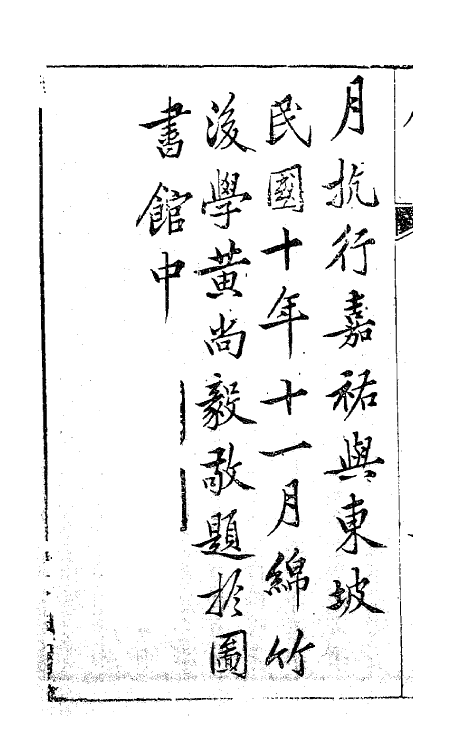 月抗行嘉祐與東坡
民國十年十一月綿竹
後學黄尚毅敬題於圖
書館中